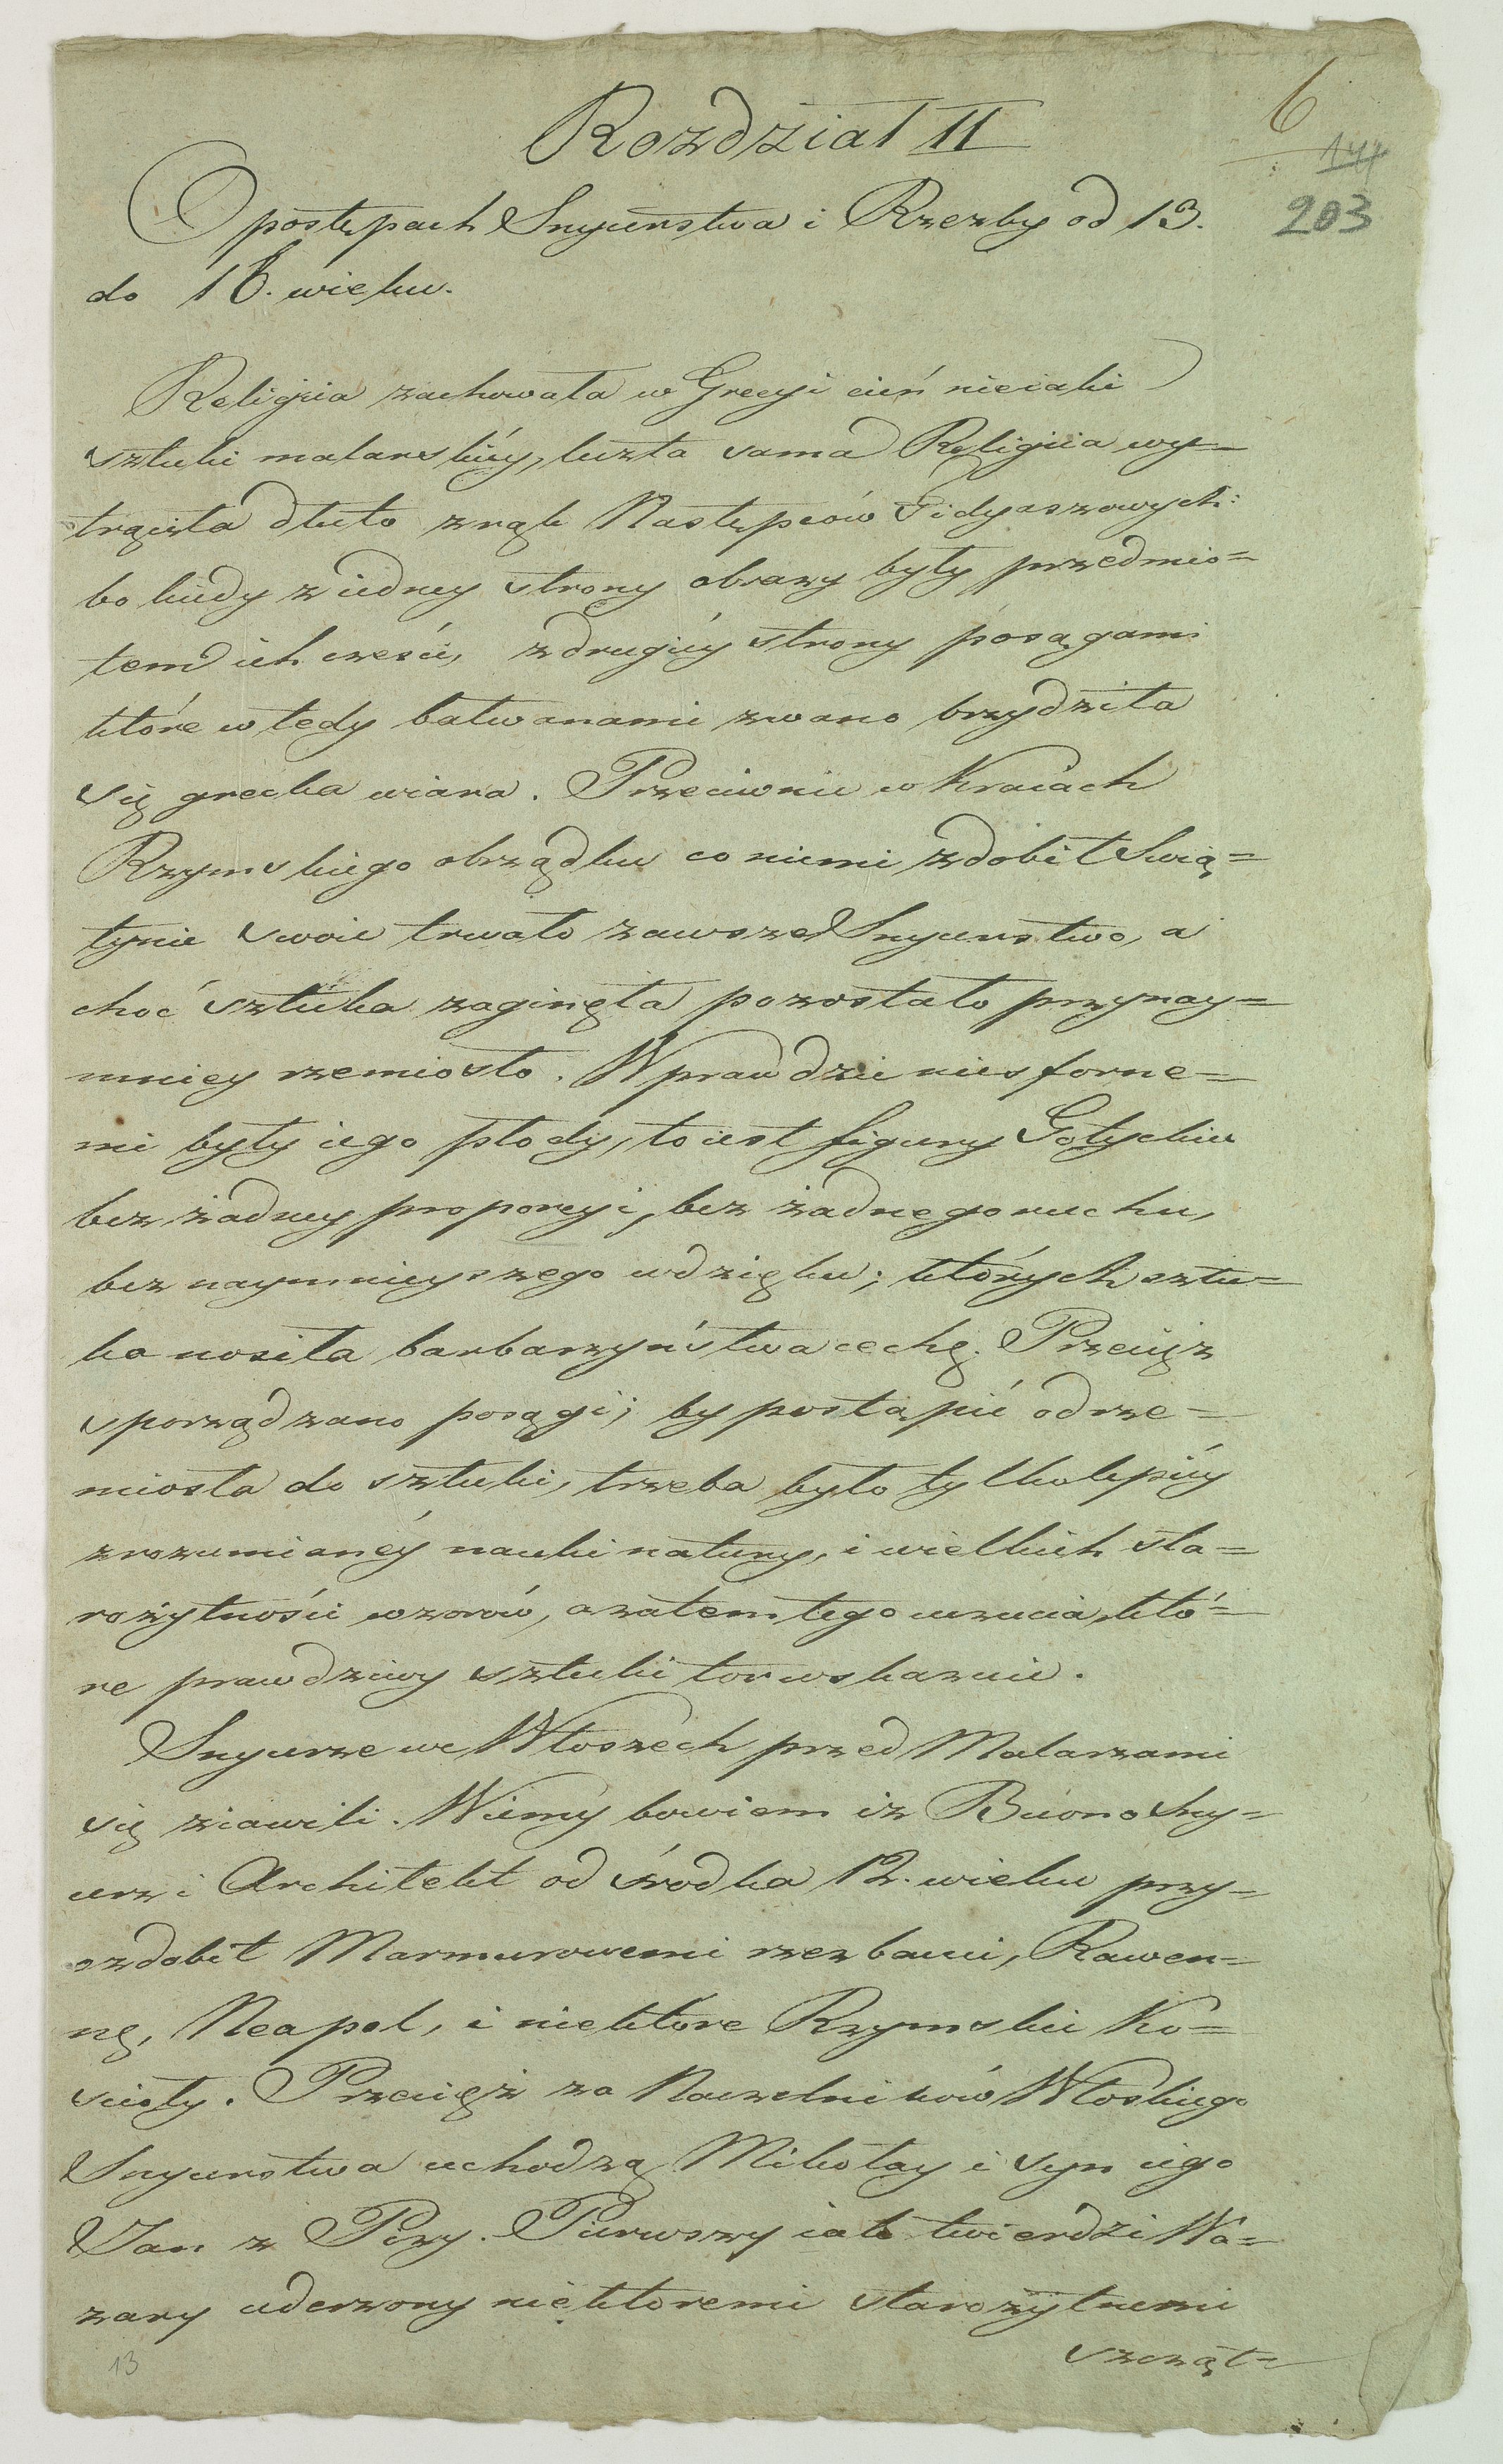 6
144
203
Rozdział II
O postępach Snycerstwa i Rzezby od 13.
do 18. wieku.
Religiia zachowała w Grecyi cień nieiaki
sztuki malarskiéy, lecz ta sama Religiia wy=
trąciła dłuto z rąk Następców Fidyaszowych:
bo kiedy z iedney strony obrazy były przedmio=
tem ich czesci, z drugiéy strony posągami
które wtedy bałwanami zwano brzydziła
się grecka wiara. Przeciwnie w Kraiach
Rzymskiego obrządku co niemi zdobił Swią=
tynie swoie trwało zawsze Snycerstwo, a
choć sztuka zaginęła pozostało przynay=
mniey rzemiosło. Wprawdzie niesforne=
mi były iego płody, to iest figury Gotyckie
bez żadney proporcyi, bez żadnego ruchu,
bez naymnieyszego wdzięku; których sztu=
ka nosiła barbarzyństwa cechę. Przecięż
sporządzano posągi; by postąpić od rze=
miosła do sztuki, trzeba było tylko lepiéy
zrozumianéy nauki natury, i wielkich sta=
rożytności wzorów, a zatem tego uczucia, któ=
re prawdziwy sztuki tor wskazuie.
Snycerze we Włoszech przed Malarzami
się ziawili. Wiemy bowiem iż Buono Sny=
cerz i Architekt od środka 12. wieku przy=
ozdobił Marmurowemi rzezbami, Rawen=
nę, Neapol, i niektore Rzymskie Ko=
scioły. Przecięż za Naczelników Włoskiego
Snycerstwa uchodzą Mikołay i syn iego
Jan z Pizy. Pierwszy iak twierdzi Wa=
zary uderzony niektoremi starożytnemi
szcząt=
13